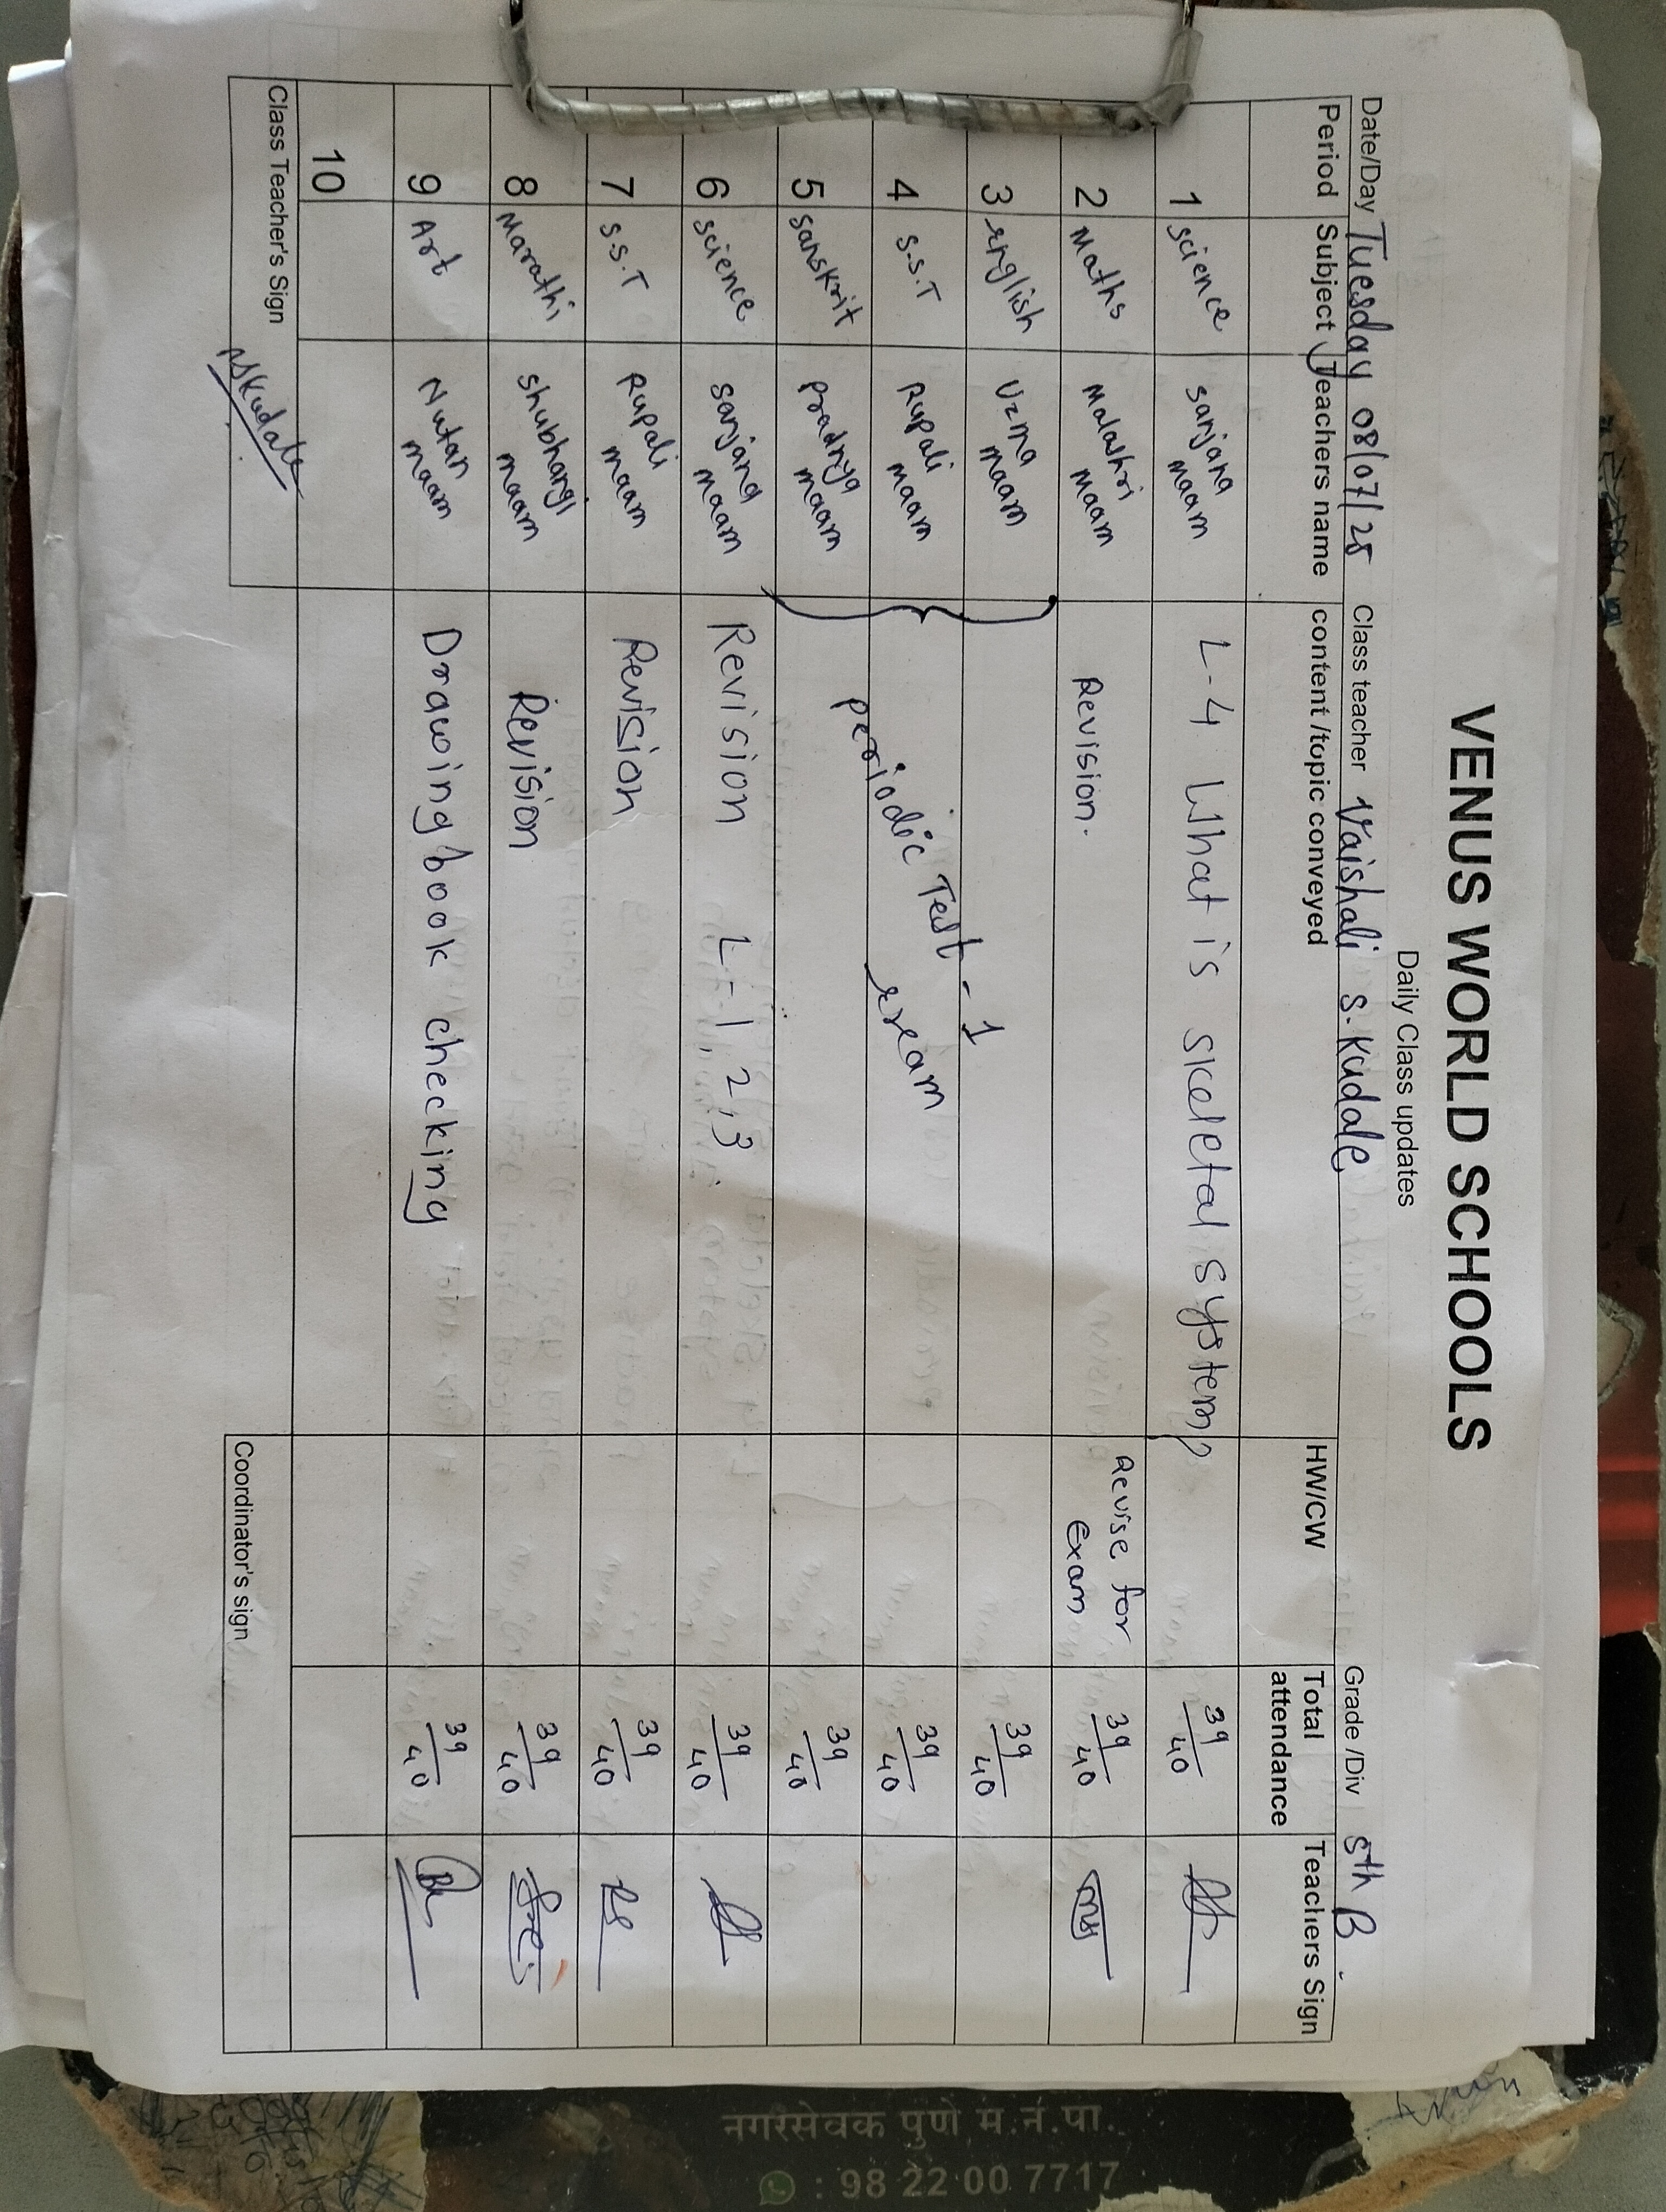 VENUS WORLD SCHOOLS
Daily Class updates
Date/Day Tuesday 08/07/25 Class teacher Vaishali S. Kudale Grade /Div 5th B
Period Subject Teachers name content /topic conveyed HW/CW Total attendance Teachers Sign
1 science sanjana maam L-4 What is skeletal system 39/40
2 Maths Malashri maam Revision. Revise for Exam 39/40
3 english Uzma maam 39/40
4 S.S.T Rupali maam periodic Test - 1 exam 39/40
5 Sanskrit pradnya maam 39/40
6 science sanjana maam Revision L-1, 2, 3 39/40
7 S.S.T Rupali maam Revision 39/40
8 Marathi shubhangi maam Revision 39/40
9 Art Nutan maam Drawing book checking 39/40
10
Class Teacher's Sign Coordinator's sign
नगरसेवक पुणे म.न.पा.
: 98 22 00 7717